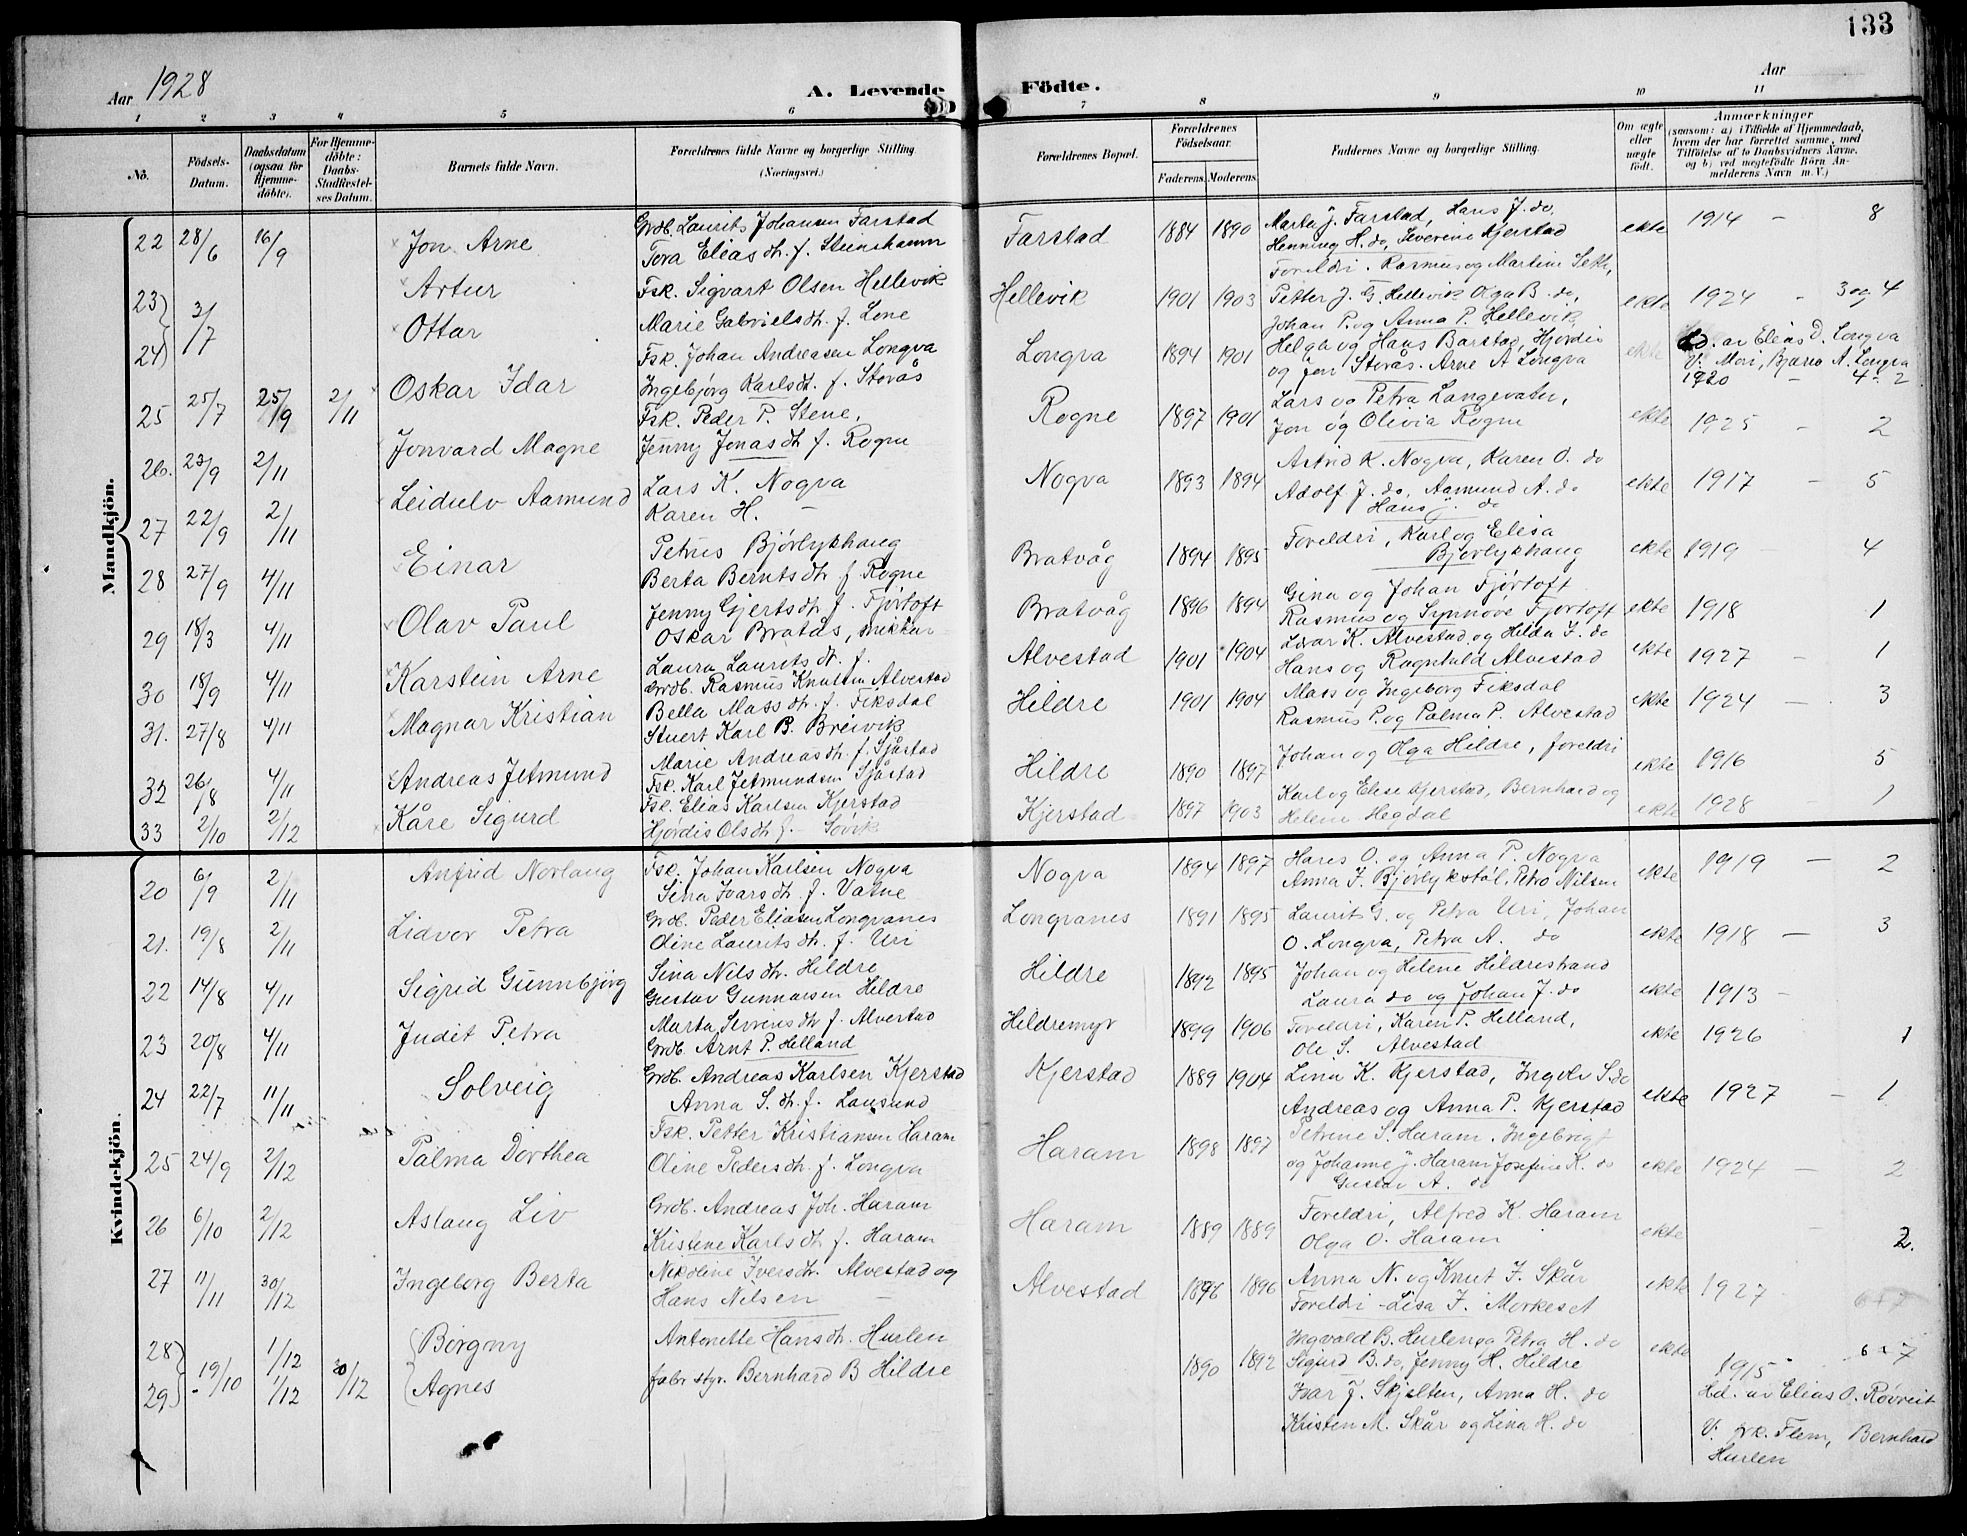 133
Aar 1928
A. Levende Födte.
Aar
1 2 3 4 5 6 7 8 9 10 11
No.
Födsels-Datum.
Daabsdatum (ogsaa for Hjemme-döbte).
For Hjemme-döbte: Daabs-Stadfæstel-ses Datum.
Barnets fulde Navn.
Forældrenes fulde Navne og borgerlige Stilling. (Næringsvei.)
Forældrenes Bopæl.
Forældrenes Födselsaar.
Faderens. Moderens.
Faddernes Navne og borgerlige Stilling.
Om ægte eller uægte födt.
Anmærkninger
(saasom: a) i Tilfælde af Hjemmedaab, hvem der har forrettet samme, med Tilföielse af to Daabsvidners Navne, og b) ved uegtefödte Börn An-melderens Navn m. V.)
Mandkjön.
22 28/6 16/9 Jon Arne Grdb. Laurits Johansen Farstad Farstad 1884 1890 Marta J. Farstad, Hans J. do. ekte 1914 - 8
Tora Elias dt. f. Steinshamn Henning H. do, Severine Kjerstad
23) 3/7 Artur Fsk. Sigvart Olsen Hellevik Hellevik 1901 1903 Foreldri. Rasmus og Martine Seth, ekte 1924 - 3 og 4
Petter J. G. Hellevik Olga B. do,
24) Ottar Marie Gabriels dt. f. Lone Johan P. og Anna P. Hellevik
25 25/7 25/9 2/11 Oskar Idar Fsk. Johan Andreasen Longva Longva 1894 1901 Helga og Hans Barstad, Hjördis ekte Hd. av Elias D. Longva
Ingebjørg Karlsdt. f. Storås og Jon Storås. Arne A Longva V: Mori, Bjarne A. Longva
1920 - 4 - 2
26. 23/9 2/11 Jonvard Magne Fsk. Peder P. Stene, Rogne 1897 1901 Lars og Petra Langevatn, ekte 1925 - 2
Jenny Jonas dt f. Rogne Jon og Olivia Rogne
27 22/9 2/11 Leidulv Aamund Lars K. Nogva Nogva 1893 1894 Astrid K. Nogva, Karen O. do ekte 1917 - 5
Karen H. - Adolf J. do, Aamund A. do
Hans J. do
28 27/9 4/11 Einar Petrus Bjørlykhaug Bratvåg 1894 1895 Foreldri, Karl og Elisa ekte 1919 4
Berta Bernts dt f Rogne Bjørlykhaug
29 18/3 4/11 Olav Paul Jenny Gjerts dt. f. Fjørtoft Bratvåg 1896 1894 Gina og Johan Fjørtoft ekte 1918 1
Oskar Bratås, snikkar Rasmus og Synnøve Fjørtoft
30 18/9 4/11 Karstein Arne Laura Laurits dt. f. Alvestad 1901 1904 Ldvar K. Alvestad og Hilda J. do ekte 1927 - 1
Grdb. Rasmus Knutsen Alvestad Hans og Ragnhild Alvestad
31. 27/8 4/11 Magnar Kristian Bella Mass dt. f. Fiksdal Hildre 1901 1904 Mass og Ingeborg Fiksdal ekte 1924 - 3
Stuert Karl B. Breivik Rasmus P. og Palma P. Alvestad
32 26/8 4/11 Andreas Jetmund Marie Andreas dt. f. Sjåstad Hildre 1890 1897 Johan og Olga Hildre, foreldri ekte 1916 5
Fsk. Karl Jetmundsen Sjåstad
33 2/10 2/12 Kåre Sigurd Fsk. Elias Karlsen Kjerstad Kjerstad 1897 1903 Karl og Elise Kjerstad, Bernhard og ekte 1928 - 1
Hjördis Ols dt f. - Søvik Helene Hegdal
Kvindekjön.
20 6/9 2/11 Anfrid Norlaug Fsk. Johan Karlsen Nogva Nogva 1894 1897 Hans O. og Anna P. Nogva ekte 1919 - 2
Sina Ivars dt. f. Vatne Anna J. Bjørlykstøl, Petro Nilsen
21. 19/8 2/11 Lidvor Petra Grdb. Peder Eliasen Longvanes Longvanes 1891 1895 Laurits G. og Petra Uri, Johan ekte 1918 - 3
Oline Laurits dt. f. Uri O. Longva, Petra A. do
22 14/8 4/11 Sigrid Gunnbjörg Sina Nils dt. Hildre Hildre 1892 1895 Johan og Helene Hildrestrand ekte 1913 -
Gustav Gunnarsen Hildre Laura do og Johan J. do
23 20/8 4/11 Judit Petra Marta Severins dt f. Alvestad Hildremyr 1899 1906 Foreldri, Karen P. Helland, ekte 1926 1
Grdb. Arnt P. Helland Ole S. Alvestad
24 22/7 11/11 Solveig Grdb. Andreas Karlsen Kjerstad Kjerstad 1889 1904 Lina K. Kjerstad, Ingolv S. do ekte 1927 - 1
Anna S. dt. f. Lausund Andreas og Anna P. Kjerstad
25 24/9 2/12 Palma Dorthea Fsk. Petter Kristiansen Haram Haram 1898 1897 Petrine S. Haram. Ingebrigt ekte 1924 - 2
Oline Peders dt. f. Longva og Johanne J. Haram Josefine K. do
Gustav A. do
26 6/10 2/12 Aslaug Liv Grdb. Andreas Joh. Haram Haram 1889 1889 Foreldri, Alfred K. Haram ekte 2.
Kristene Karls dt f. Haram Olga O. Haram
27 11/11 30/12 Ingeborg Berta Nikoline Ivers dt. Alvestad og Alvestad 1896 1896 Anna N. og Knut J. Skår ekte 1927
Hans Nilsen - Foreldri - Lisa J. Morkeset 6+7
28) 19/10 1/12 (Borgny Antonette Hans dt. Hurlen 1890 1892 Ingvald B. Hurlen og Petra H. do ekte 1915 6 + 7
29) 1/12 30/12 (Agnes fabr. styr. Bernhard B Hildre Sigurd B. do, Jenny H. Hildre
Ivar J. Skjelten, Anna H. do Hd. av Elias O. Røvreit
Kristen M. Skår og Lina H. do V: frk. Flem, Bernhard
Hurlen